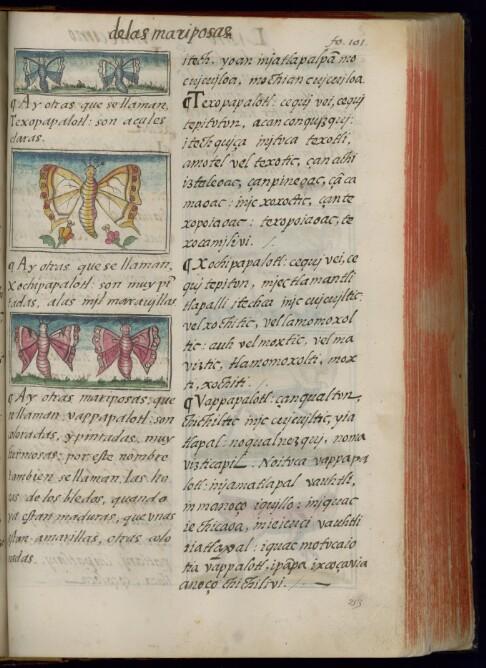 de las mariposas.
fo. 101.
¶ Ay otras que se llaman,
Texopapalotl: son azules
claras.
¶ Ay otras que se llaman,
xochipapalotl: son muy pī
tadas, a las mil maravillas
¶ Ay otras mariposas: que
se llaman vappapalotl: son
coloradas, y pintadas, muy
hermosas: por este nombre
tambien se llaman las ho
jas de los bledos, quando
ya estan maduras, que vnas
estan amarillas, otras colo
radas.
itech, yoan injatlapalpā mo
cujcujloa, mochian cujcujloa.
¶ Texopapalotl: cequj vei, cequj
tepitoton, acan conqujzquj:
itech qujça injtoca texotli,
amotel vel texotic, çan achi
izteleoac, çan pineoac, çā ca
maoac: injc xoxoctic, çan te
xopoiaoac: texopoiaoac, te
xocamjlivi.
¶ Xochipapalotl: cequj vei, ce
quj tepiton, mjec tlamantli
tlapalli itechca injc cujcujltic,
vel xochitic, vel lamomoxol
tic: auh vel moxtic, vel ma
viztic, tlamomoxolti, mox
ti, xochiti.
¶ Vappapalotl: çanqualton,
chichiltic injc cujcujltic, yia
tlapal: noqualnezquj, noma
vizticapil. No itoca vappapa
lotl: injamatlapal vauhtli,
in manoço iqujllo: injquac
ie chicaoa, in ie icuci vauhtli
njatlapal: iquac motocaio
tia vappalotl, ipāpa ixcoçavia
anoço chichilivi.